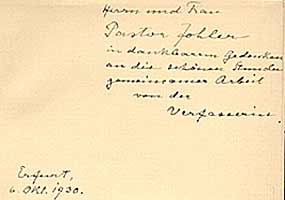 Herrn und Frau
Pastor Johler
in dankbarem Gedenken
an die schönen Stunden
gemeinsamer Arbeit
von der
Verfasserin.
Erfurt,
6. Okt. 1930.